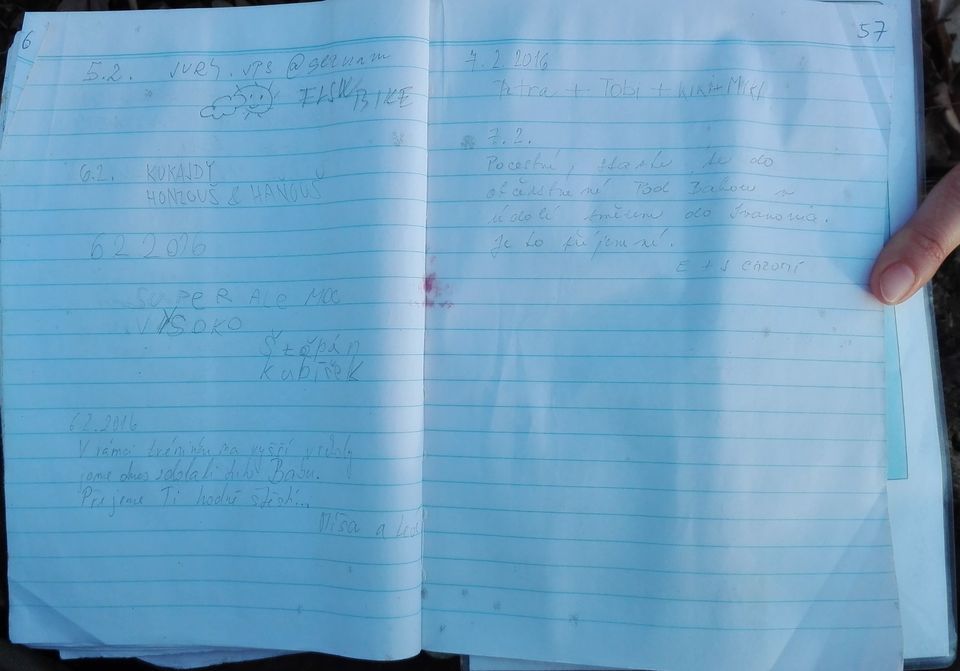 6
5.2. JURY.VPS @seznam
FISK BIKE
6.2. KUKAJDY
HONZOUŠ & HAŇOUŠ
6 2 2016
SUPER ALE MOC
VYSOKO
Štěpán
kubíšek
6.2.2016
V rámci tréninku na vyšší vrcholy
jsme dnes zdolali tuto Babu.
Přejeme Ti hodně štěstí...
Míša a
57
7.2.2016
Petra + Tobi + kiki +
7.2.
Pocestní, stavte se do
občerstvení Pod Babou v
údolí směrem do Ivanovic.
Je to příjemné.
E + S